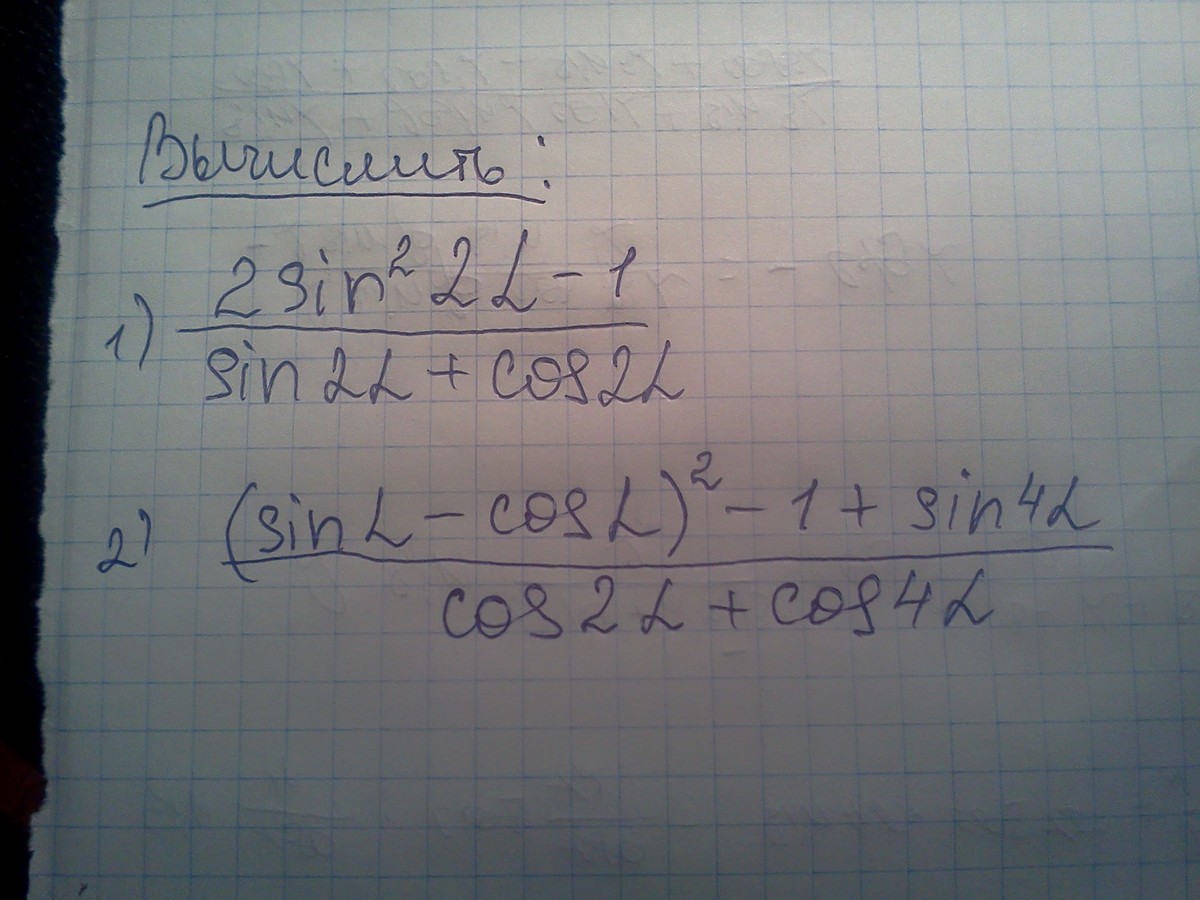 Вычислить:
1) (2sin² 2α - 1) / (sin2α + cos2α)
2) ((sinα - cosα)² - 1 + sin4α) / (cos2α + cos4α)